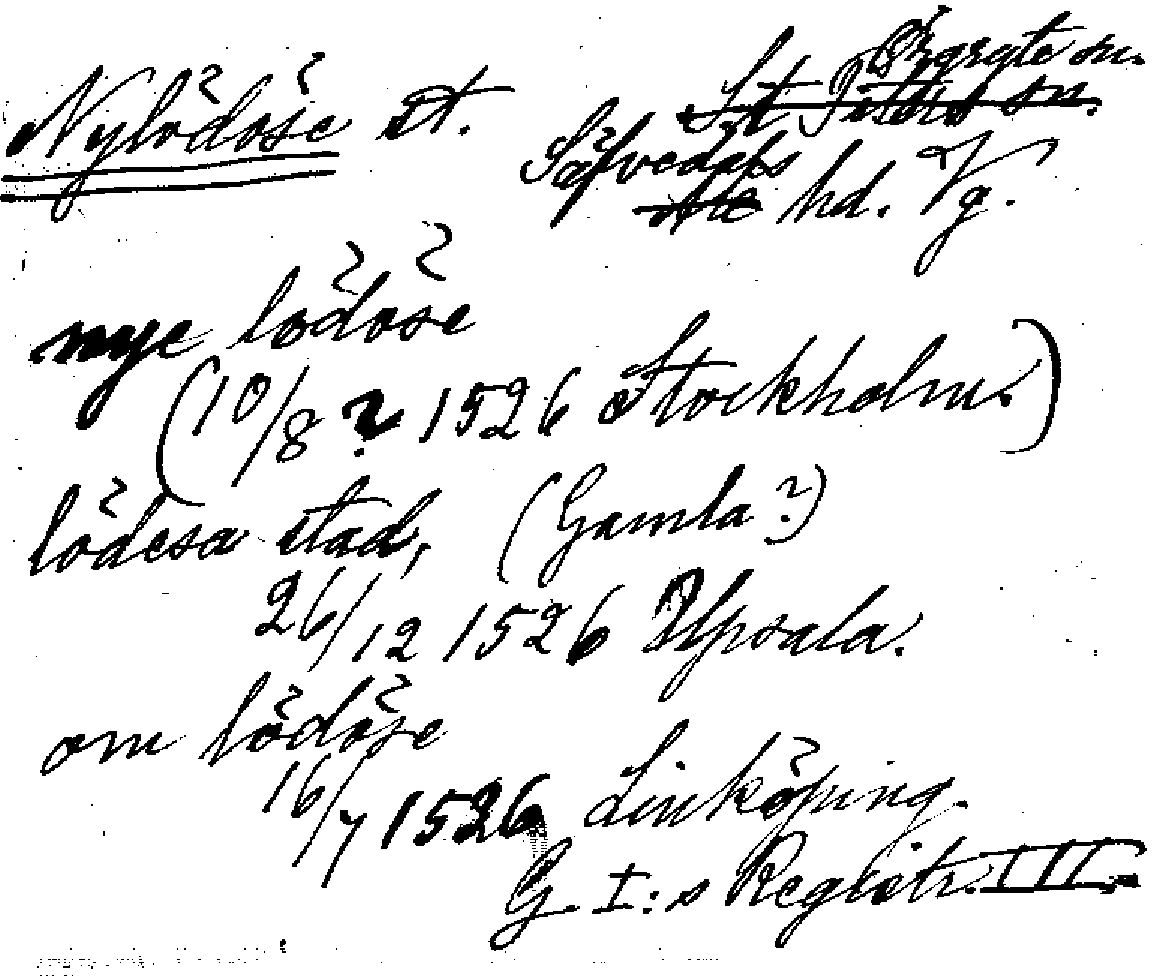 Nylödöse st.
Örgryte sn.
St Peters sn.
Säfvedals
Ale hd. Vg.
nye lödöse
(10/8 ? 1526 Stockholm.)
lödesa stad, (Gamla?)
26/12 1526 Upsala.
om lödöse
16/7 1526 Linköping.
G. I:s Registr. III.